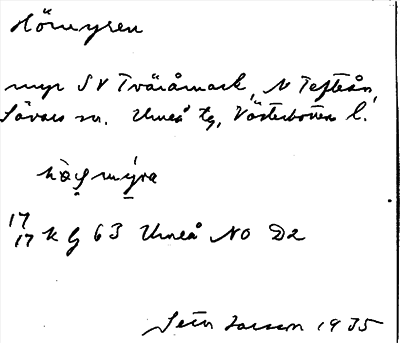 Hömyren
myr SV Tväråmark, N Tefteån,
Sävars sn. Umeå tg, Västerbotten l.
17/17 k G 63 Umeå NO D2
Seth Larsson 1935